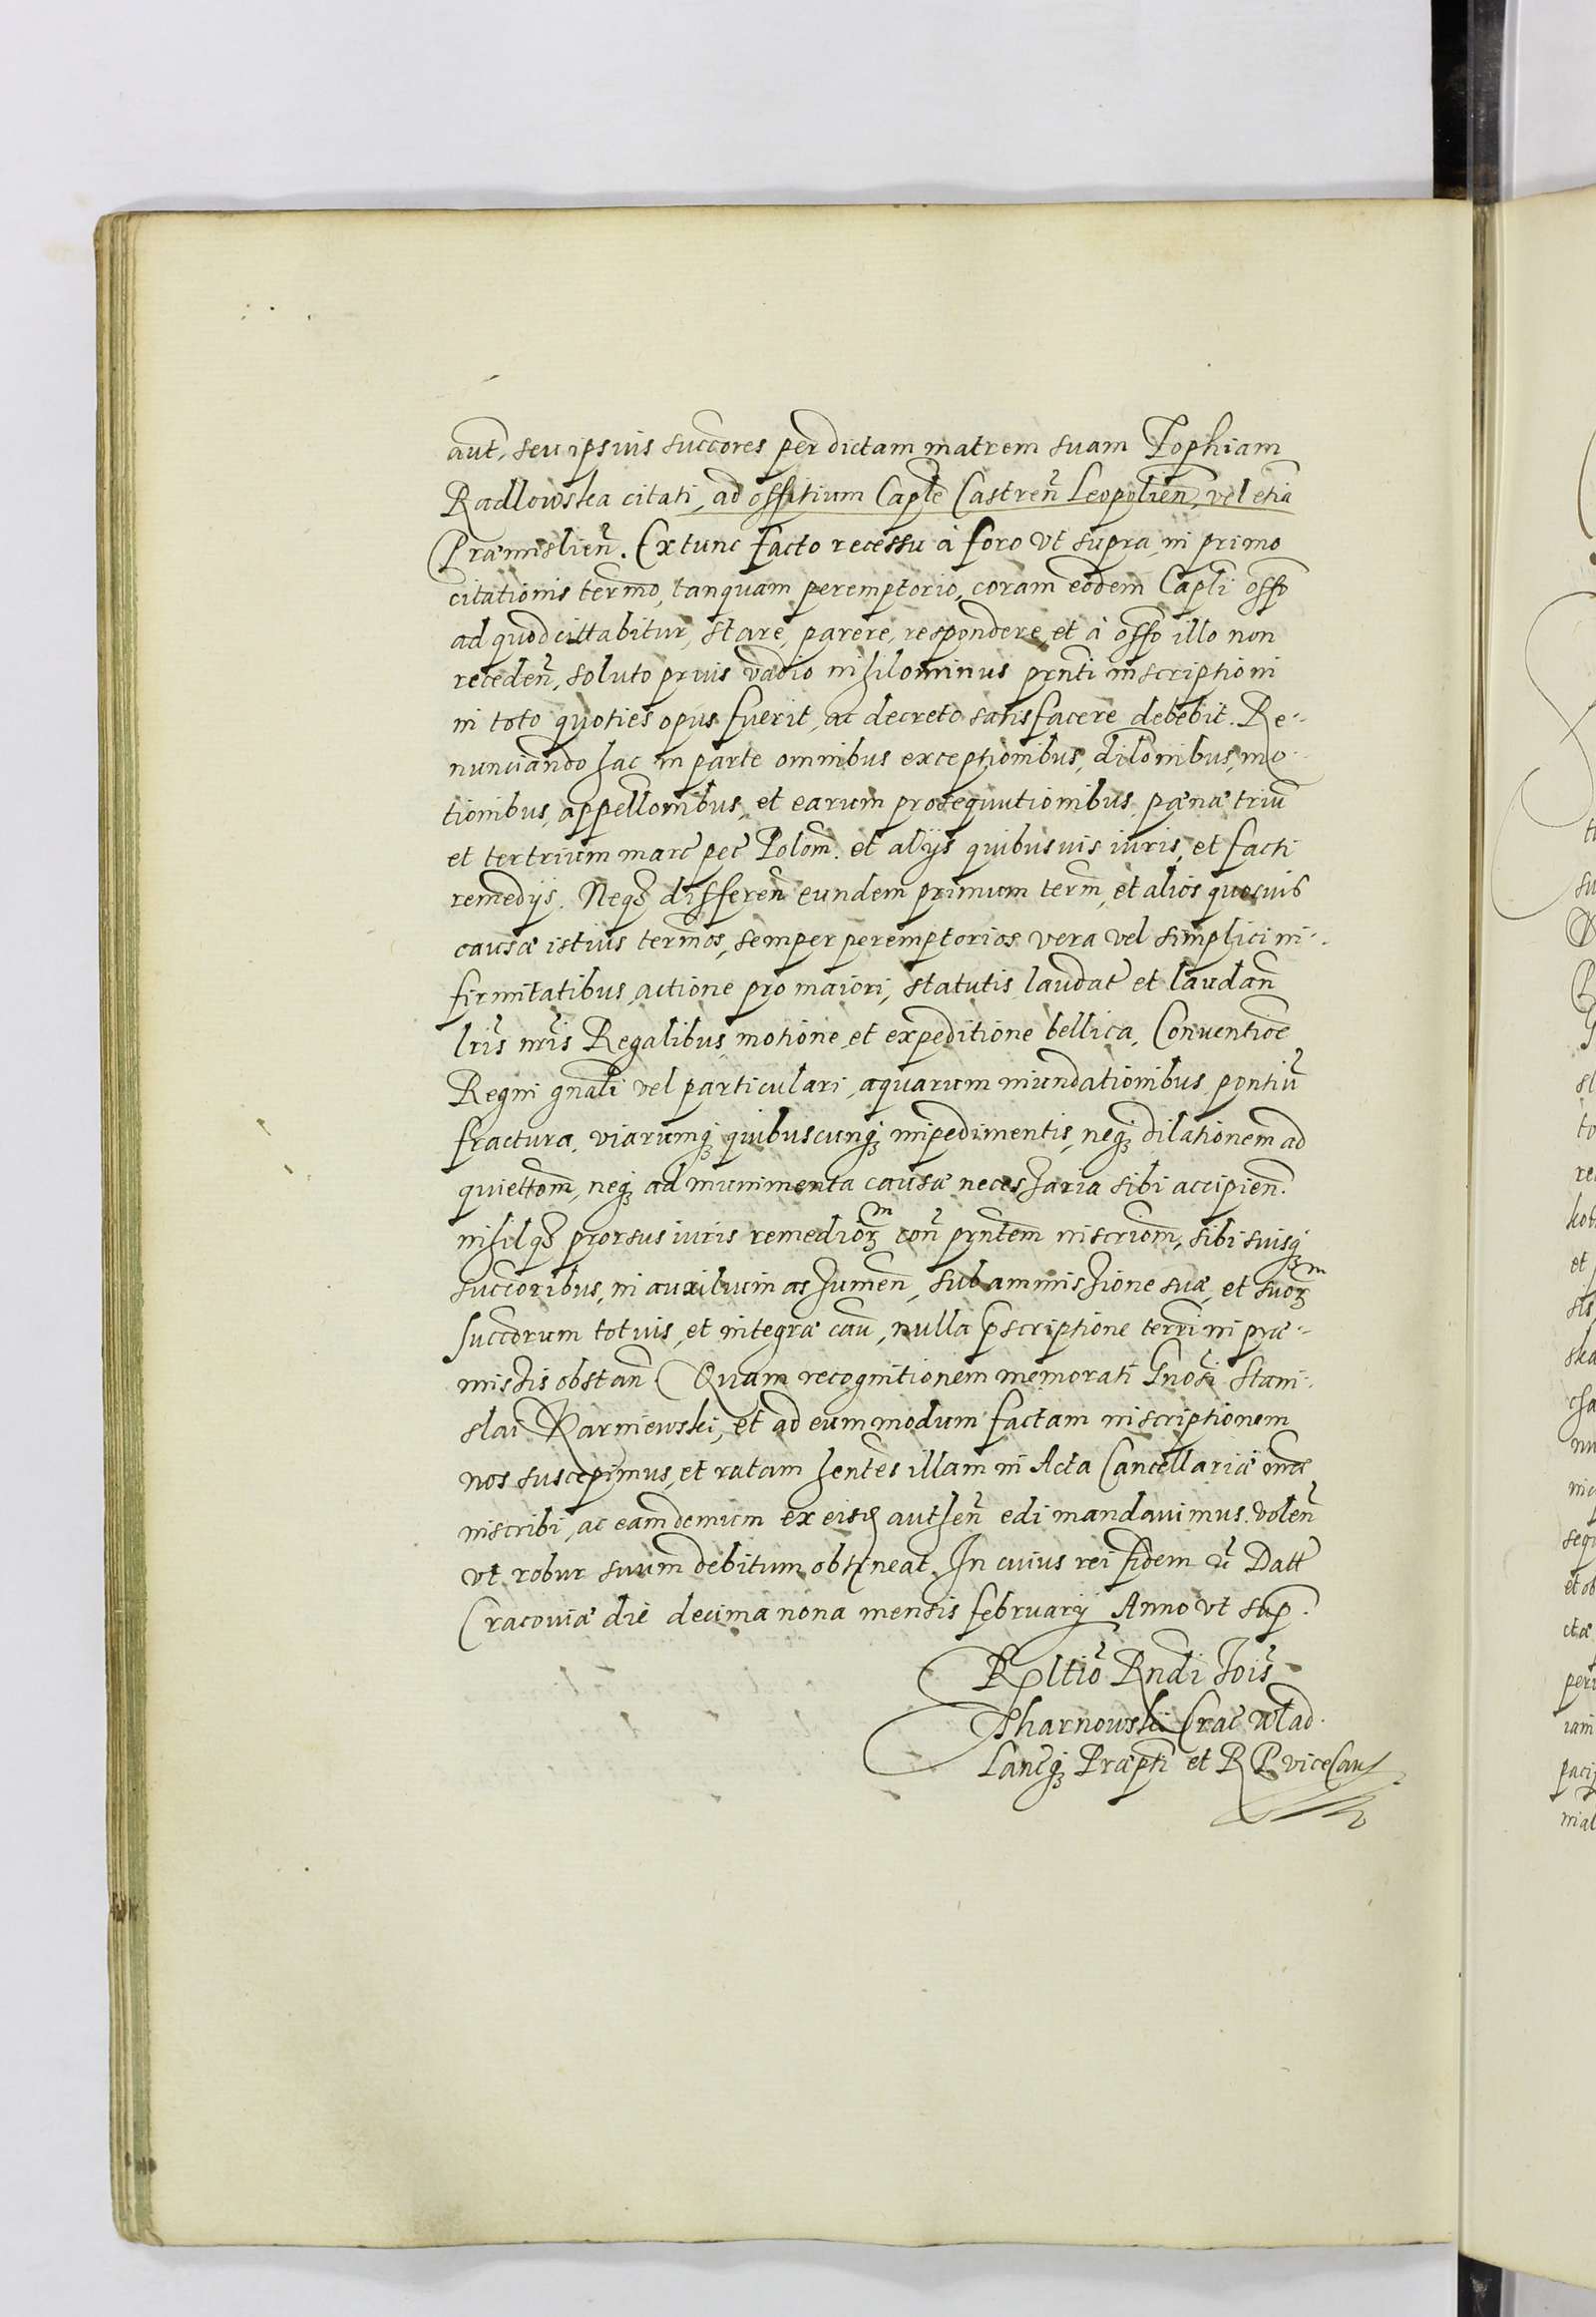 aut̃, seu ipsius succõres per dictam matrem suam Zophiam
Radlowska citati, ad offitium Captłe Castreñ Leopolieñ, vel etiã
Præmislieñ. Extunc facto recessu à foro vt supra, in primo
citationis term̃o, tanquam peremptorio, coram eodem Capłi offõ
ad quod cittabitur, stare, parere, respondere, et à offõ illo non
recedeñ, soluto prius vadio nihilominus prñti inscriptioni
in toto quoties opus fuerit, ac decreto satisfacere debebit. Re-
nunciando hac in parte omnibus exceptionibus, dilõnibus, mo-
tionibus, appellõnibus, et earum prosequutionibus, pœnæ triũ
et tertrium marc̃ pec̃ Polom̃. et alijs quibusuis iuris, et facti
remedijs. Neq; differeñ eundem primum term̃, et alios quosuis
causæ istius term̃os, semper peremptorios vera vel simplici in-
firmitatibus, actione pro maiori, statutis laudat̃ et laudañ
lr̃is nr̃is Regalibus, motione, et expeditione bellica, Conuentiõe
Regni gñali vel particulari, aquarum inundationibus, pontiũ
fractura, viarumq; quibuscunq; impedimentis, neq; dilationem ad
quiettõm, neq; ad munimenta causæ necessaria sibi accipieñ.
nihilq; prorsus iuris remediorm̃ coñ prñtem inscriõm, sibi suisq;
succõribus, in auxilium assumeñ, sub ammissione suæ, et suorm̃
succõrum totuis, et integræ caũ, nulla p̃scriptione terr̃i in præ-
missis obstañ. Quam recognitionem memorati Gñosi Stani-
slai Karniewski, et ad eum modum factam inscriptionem
nos suscepimus, et ratam hentes illam in Acta Cancellariæ nr̃æ
inscribi, ac eam demum ex eisd autheñ edi mandauimus. voleñ
vt robur suum debitum obtineat. In cuius rei fidem ec̃ Datt̃
Cracouiæ die decima nona mensis februarij Anno vt sup̃.
Rłtiõ Rñdi Jois̃
Tharnowski Crac̃ Wład.
Lanc̃q; Præpti et R P viceCan̄